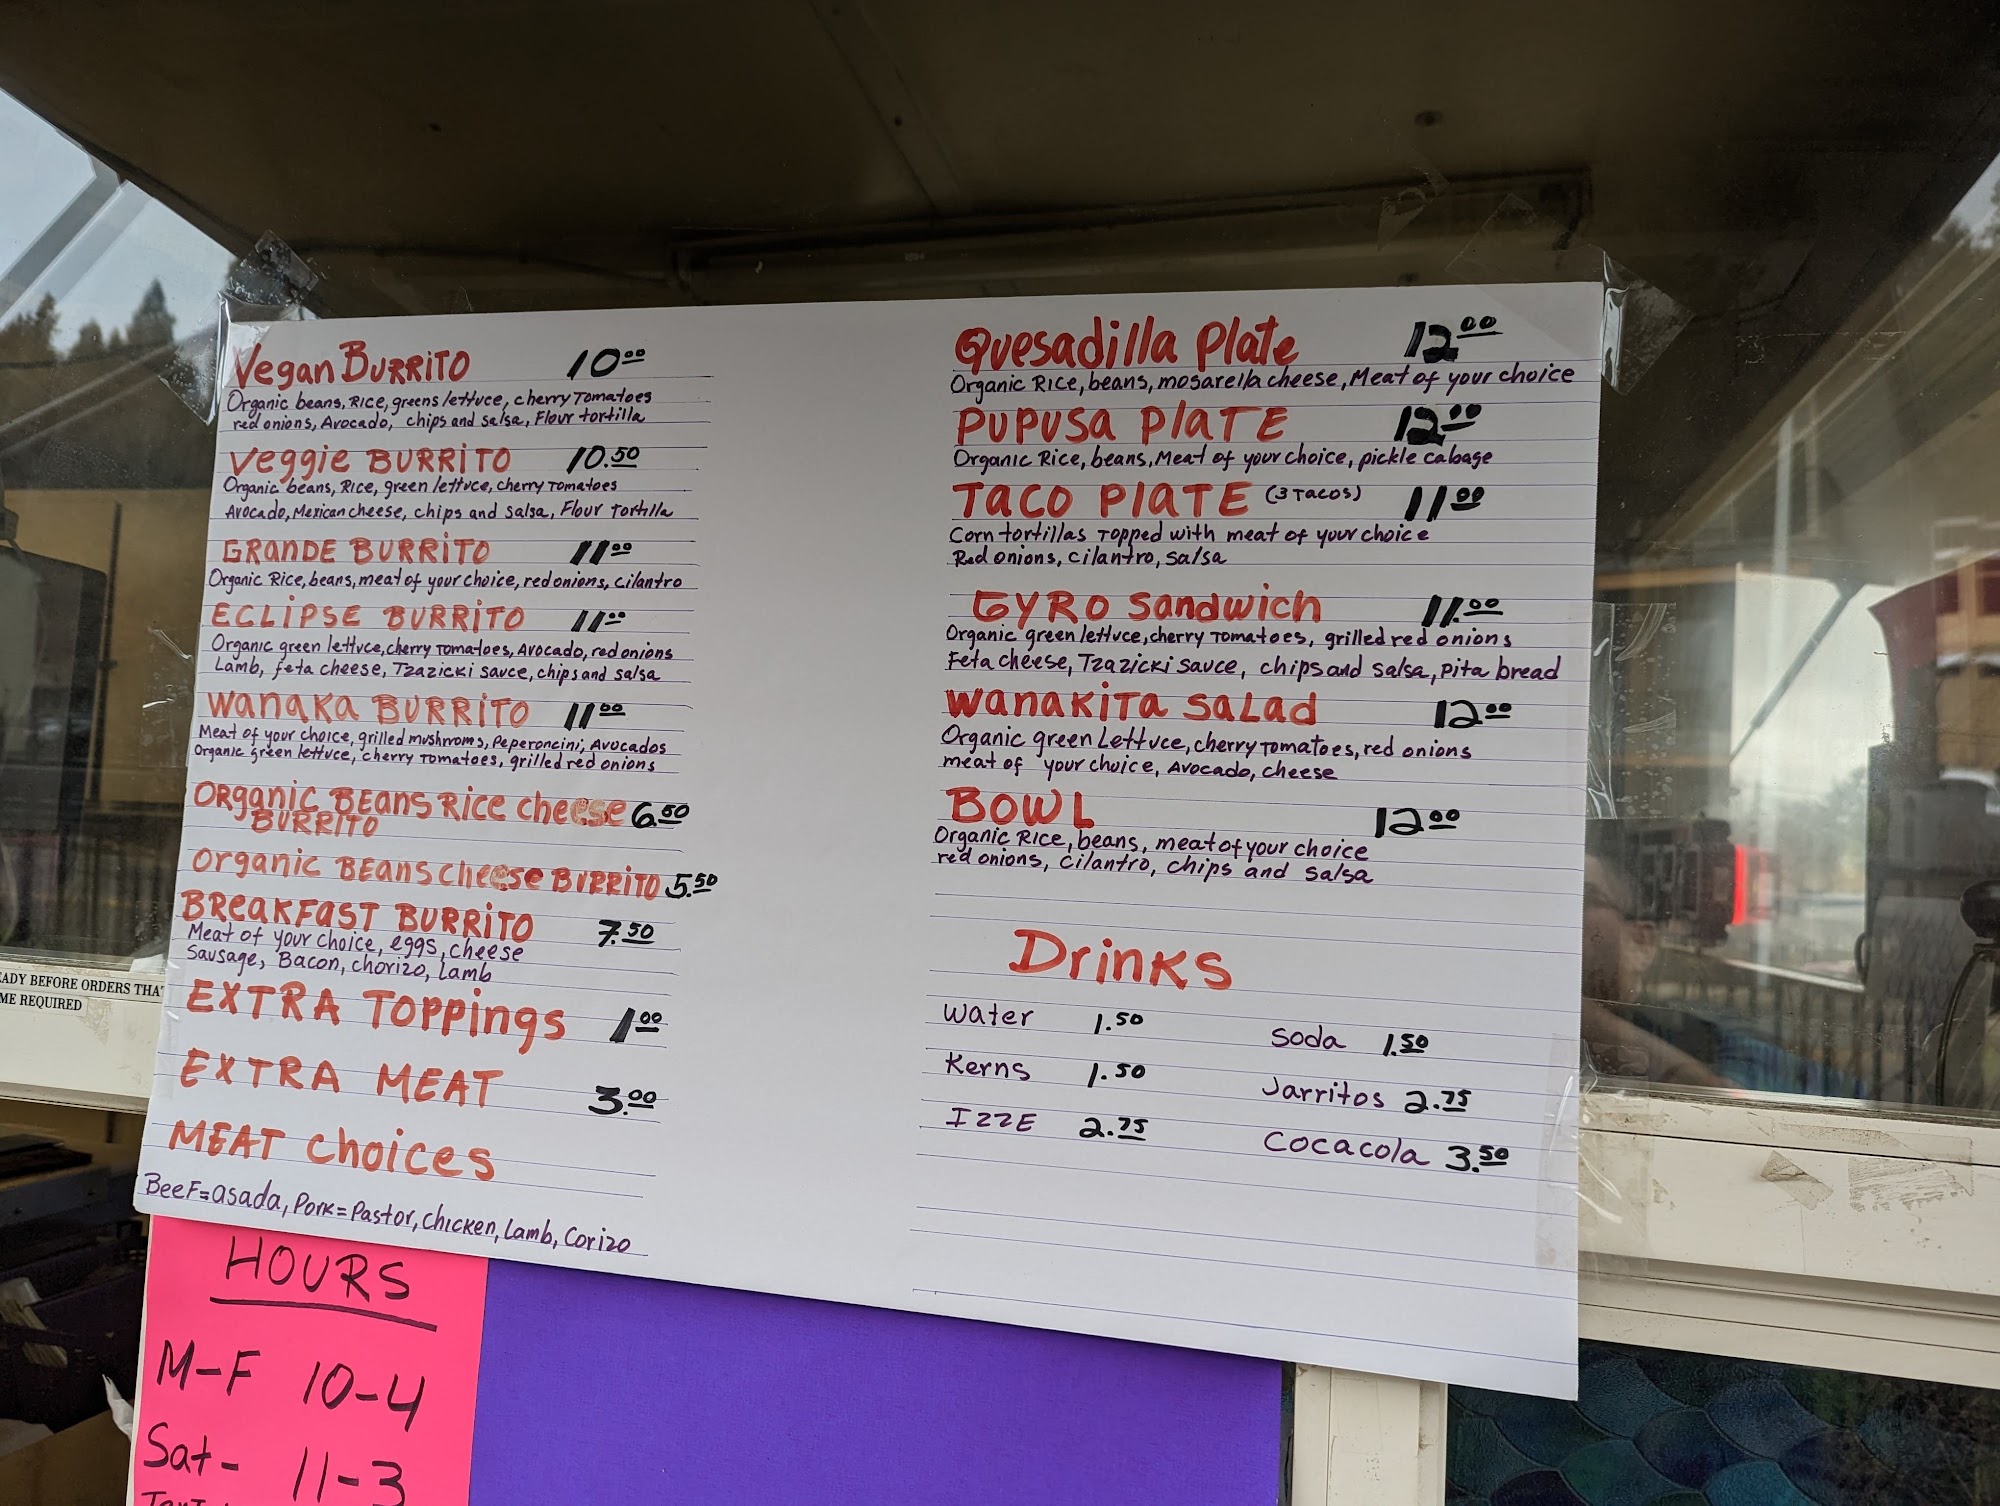 Vegan BURRITO 10.00
Organic beans, Rice, greens lettuce, cherry Tomatoes
red onions, Avocado, chips and salsa, Flour tortilla
Veggie BURRITO 10.50
Organic beans, Rice, green lettuce, cherry Tomatoes
Avocado, Mexican cheese, chips and salsa, Flour Tortilla
GRANDE BURRITO 11.00
Organic Rice, beans, meat of your choice, red onions, cilantro
ECLIPSE BURRITO 11.00
Organic green lettuce, cherry Tomatoes, Avocado, red onions
Lamb, feta cheese, Tzazicki sauce, chips and salsa
WANAKA BURRITO 11.00
Meat of your choice, grilled mushrooms, Peperoncini, Avocados
Organic green lettuce, cherry Tomatoes, grilled red onions
Organic BEans Rice cheese 6.50
BURRITO
Organic BEans cheese BURRITO 5.50
BREAKFAST BURRITO 7.50
Meat of your choice, eggs, cheese
Sausage, Bacon, chorizo, Lamb
EXTRA Toppings 1.00
EXTRA MEAT 3.00
MEAT choices
BeeF=asada, Pork=Pastor, chicken, Lamb, Corizo
Quesadilla Plate 12.00
Organic Rice, beans, mosarella cheese, Meat of your choice
PUPUSA PLATE 12.00
Organic Rice, beans, Meat of your choice, pickle cabage
TACO PLATE (3 TACOS) 11.00
Corn tortillas Topped with meat of your choice
Red onions, cilantro, salsa
GYRO Sandwich 11.00
Organic green lettuce, cherry Tomatoes, grilled red onions
Feta cheese, Tzazicki sauce, chips and salsa, Pita bread
WANAKITA SALAD 12.00
Organic green Lettuce, cherry Tomatoes, red onions
meat of your choice, Avocado, cheese
BOWL 12.00
Organic Rice, beans, meat of your choice
red onions, cilantro, chips and salsa
Drinks
Water 1.50
Soda 1.50
Kerns 1.50
Jarritos 2.75
IZZE 2.75
Cocacola 3.50
EADY BEFORE ORDERS THA
ME REQUIRED
HOURS
M-F 10-4
Sat- 11-3